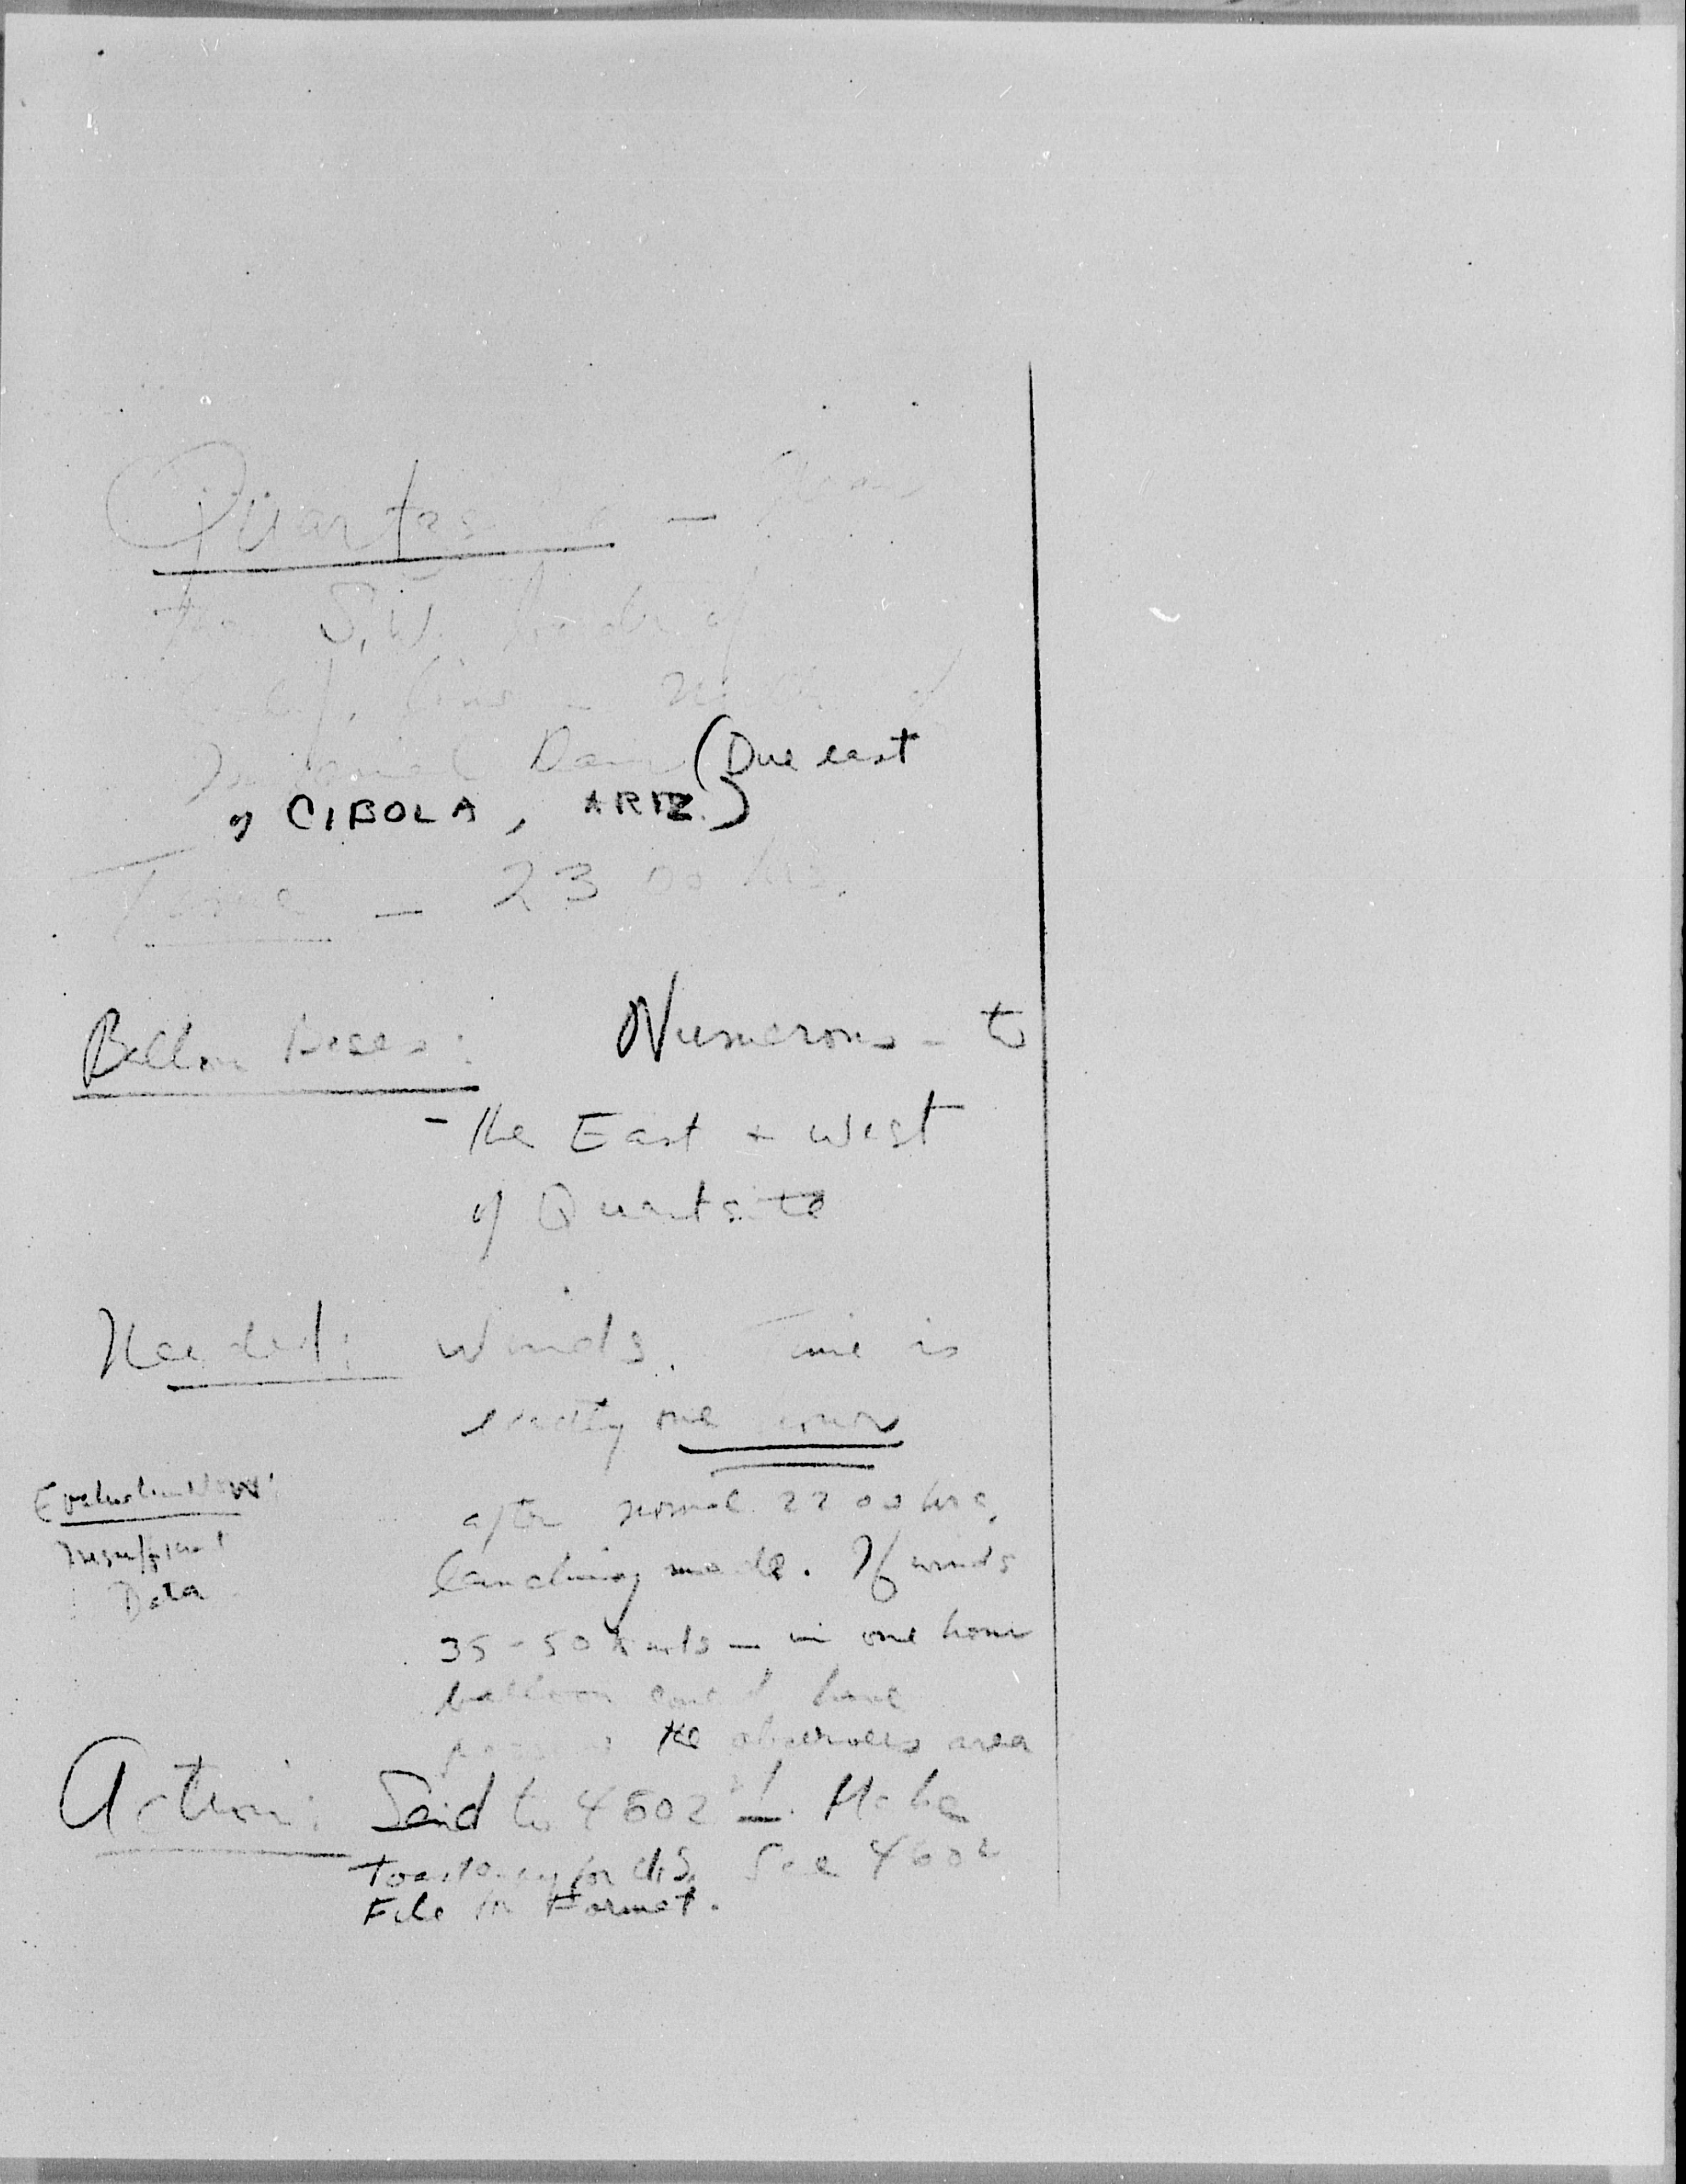 Quartzsite — Near
the S.W. border of
Calif. line —
Imperial Dam (Due east
of CIBOLA, ARIZ.)
Time — 2300 hrs.
Balloon bases: Numerous - to
- the East + West
of Quartsite
Needed: Winds. Time is
exactly one hour
after normal 2200 hrs.
launching made. If winds
35-50 knots — in one hour
balloon could have
the observers area
Evaluation:
Insufficient
Data
Action: Send to 4602d. Make
for ds. See 4602
File for Format.